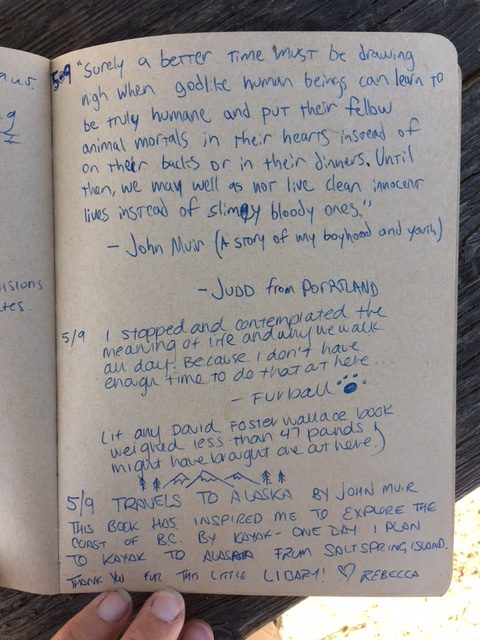 aus.
g
isions
tes
5.9 "Surely a better time must be drawing
nigh when godlike human beings can learn to
be truly humane and put their fellow
animal mortals in their hearts instead of
on their backs or in their dinners. Until
then, we may well as not live clean innocent
lives instead of slimey bloody ones."
- John Muir (A story of my boyhood and youth)
- JUDD from PORTLAND
5/9 I stopped and contemplated the
meaning of life and why we walk
all day. Because I don't have
enough time to do that out here...
- Furball
(if any David Foster Wallace book
weighed less than 47 pands I
might have brought one out here.)
5/9 TRAVELS TO ALASKA BY JOHN MUIR
THIS BOOK HAS INSPIRED ME TO EXPLORE THE
COAST OF B.C. BY KAYAK - ONE DAY I PLAN
TO KAYAK TO ALASKA FROM SALTSPRING ISLAND.
THANK YOU FOR THIS LITTLE LIBARY! ♡ REBECCA